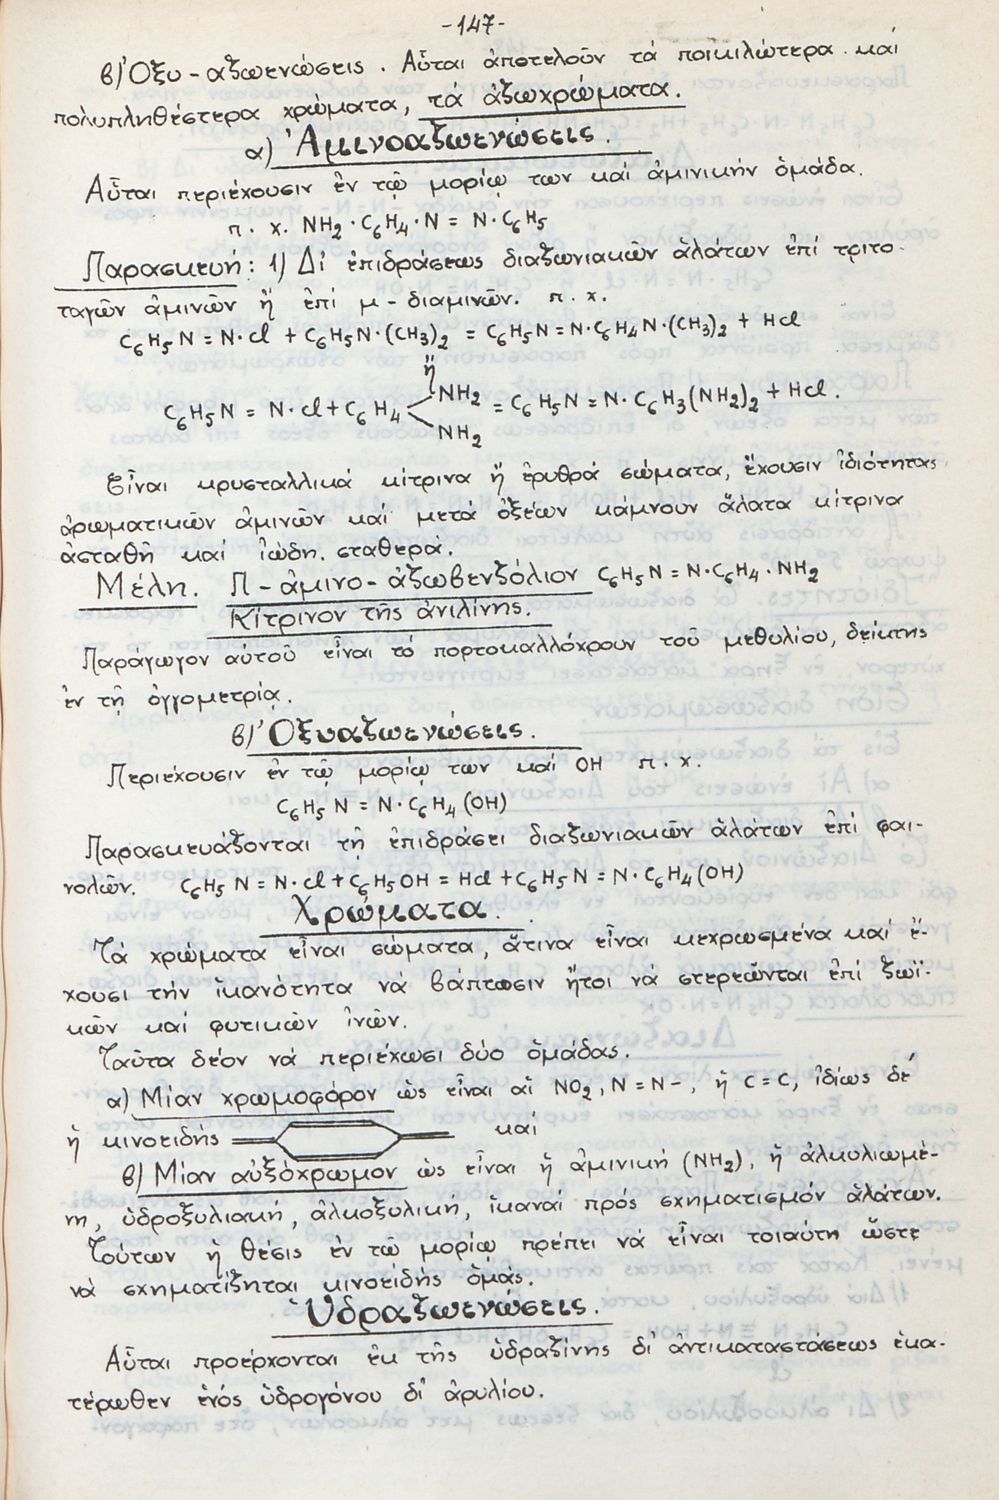 -147-
β) Ὀξυ-αζωενώσεις. Αὗται ἀποτελοῦν τά ποικιλώτερα καί
πολυπληθέστερα χρώματα, τά ἀζωχρώματα.
α) Ἀμινοαζωενώσεις.
Αὗται περιέχουσιν ἐν τῷ μορίῳ των καί ἀμινικήν ὁμάδα.
π. χ. NH₂·C₆H₄·N = N·C₆H₅
Παρασκευή: 1) Δι' ἐπιδράσεως διαζωνιακῶν ἁλάτων ἐπί τριτο-
ταγῶν ἀμινῶν ἤ ἐπί μ-διαμινῶν. π. χ.
C₆H₅N = N·Cl + C₆H₅N·(CH₃)₂ = C₆H₅N = N·C₆H₄N·(CH₃)₂ + HCl
ἤ
C₆H₅N = N·Cl + C₆H₄ NH₂ NH₂ = C₆H₅N = N·C₆H₃(NH₂)₂ + HCl.
Εἶναι κρυσταλλικά κίτρινα ἤ ἐρυθρά σώματα, ἔχουσιν ἰδιότητας
ἀρωματικῶν ἀμινῶν καί μετά ὀξέων κάμνουν ἅλατα κίτρινα
ἀσταθῆ καί ἰώδη σταθερά.
Μέλη. Π-ἀμινο-ἀζωβενζόλιον C₆H₅N = N·C₆H₄·NH₂
Κίτρινον τῆς ἀνιλίνης.
Παράγωγον αὐτοῦ εἶναι τό πορτοκαλλόχρουν τοῦ μεθυλίου, δείκτης
ἐν τῇ ὀγγομετρίᾳ.
β) Ὀξυαζωενώσεις.
Περιέχουσιν ἐν τῷ μορίῳ των καί OH π. χ.
C₆H₅N = N·C₆H₄(OH)
Παρασκευάζονται τῇ ἐπιδράσει διαζωνιακῶν ἁλάτων ἐπί φαι-
νολῶν. C₆H₅N = N·Cl + C₆H₅OH = HCl + C₆H₅N = N·C₆H₄(OH)
Χρώματα.
Τά χρώματα εἶναι σώματα, ἅτινα εἶναι κεχρωσμένα καί ἔ-
χουσι τήν ἱκανότητα νά βάπτωσιν ἤτοι νά στερεῶνται ἐπί ζωϊ-
κῶν καί φυτικῶν ἰνῶν.
Ταῦτα δέον νά περιέχωσι δύο ὁμάδας.
α) Μίαν χρωμοφόρον ὡς εἶναι αἱ NO₂, N = N-, ἤ C = C, ἰδίως δέ
ἡ κινοειδής καί
β) Μίαν αὐξόχρωμον ὡς εἶναι ἡ ἀμινική (NH₂), ἤ ἀλκυλιωμέ-
νη, ὑδροξυλιακή, ἀλκοξυλική, ἱκαναί πρός σχηματισμόν ἁλάτων.
Τούτων ἡ θέσις ἐν τῷ μορίῳ πρέπει νά εἶναι τοιαύτη ὥστε
νά σχηματίζηται κινοειδής ὁμάς.
Ὑδραζωενώσεις.
Αὗται προέρχονται ἐκ τῆς ὑδραζίνης δι' ἀντικαταστάσεως ἑκα-
τέρωθεν ἑνός ὑδρογόνου δι' ἀρυλίου.